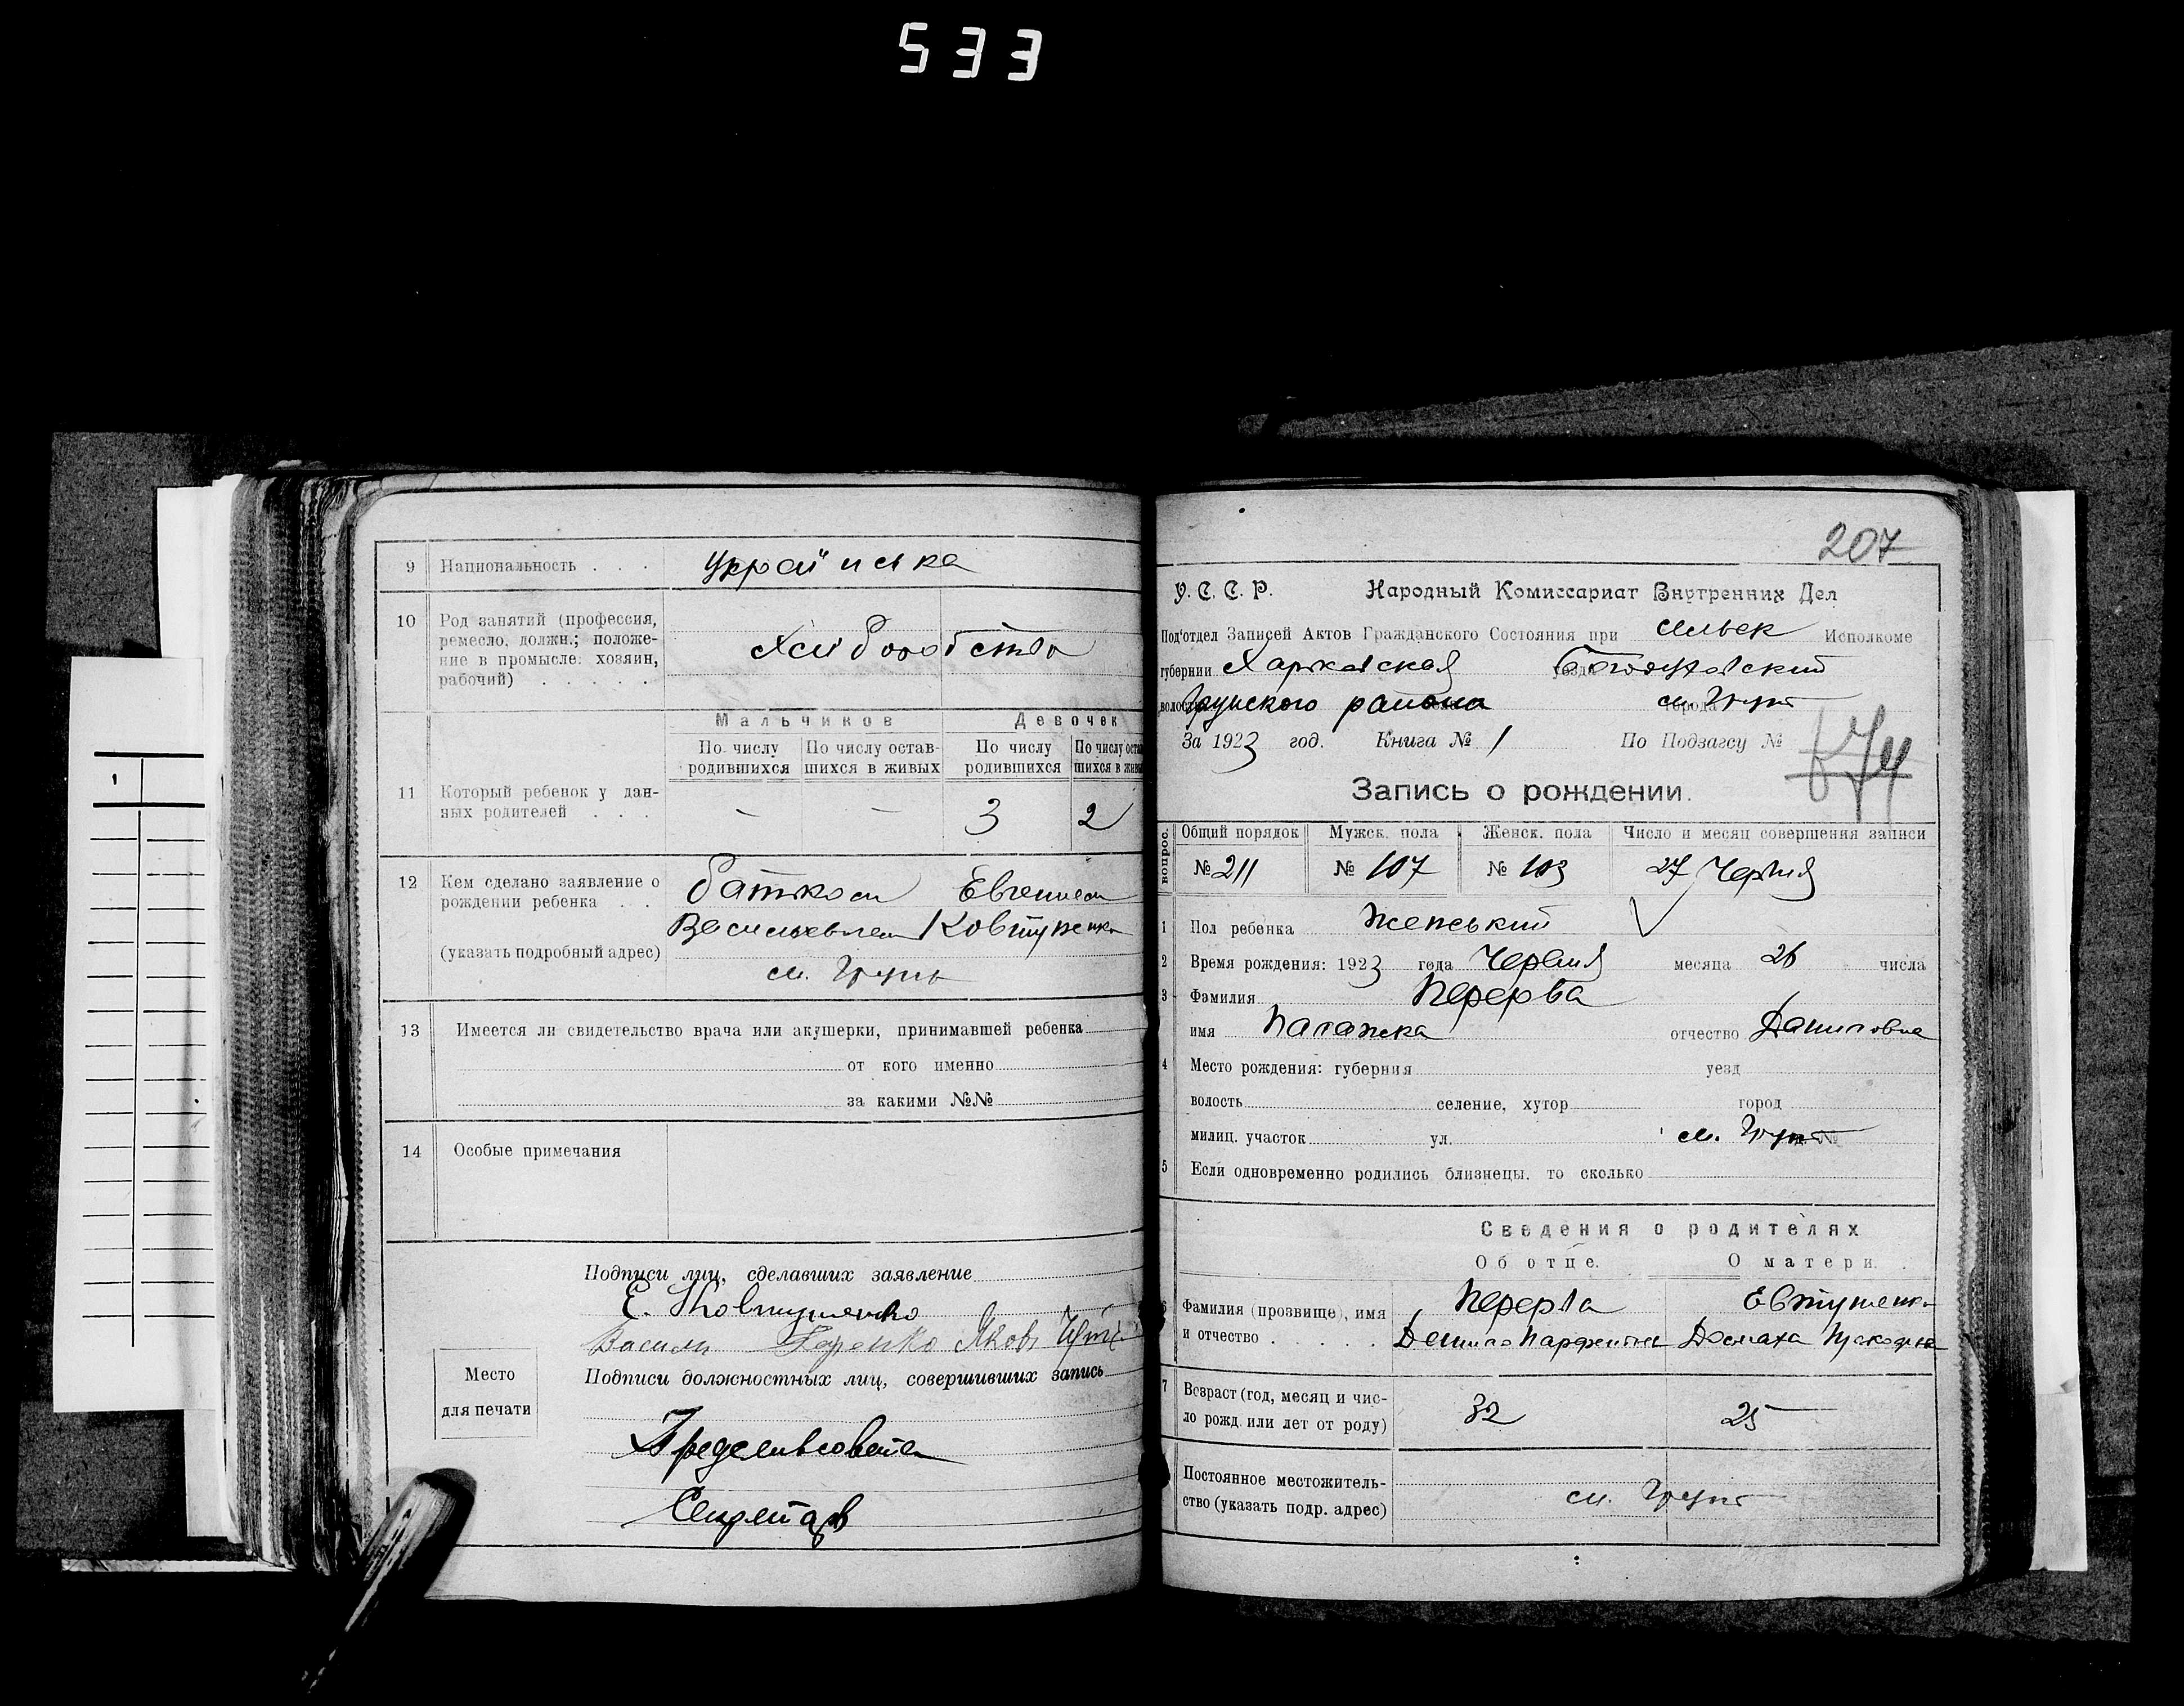 533
9 Национальность . . . Украйиська
10 Род занятий (профессия,
ремесло, должн.; положе-
ние в промысле: хозяин,
рабочий) . . . . .
Мальчиков Девочек
По числу родившихся По числу остав-шихся в живых По числу родившихся По числу остав-шихся в живых
11 Который ребенок у дан-
ных родителей . . . - - 3 2
12 Кем сделано заявление о батьком Евгением
рождении ребенка . . Васильевичем Ковтуненко
(указать подробный адрес) м. Грунь
13 Имеется ли свидетельство врача или акушерки, принимавшей ребенка
от кого именно
за какими №№
14 Особые примечания
Подписи лиц, сделавших заявление
Е. Ковтуненко
Василь Яков
Место
для печати
Подписи должностных лиц, совершивших запись
Предсельсовета
Секретарь
207
У. С. С. Р. Народный Комиссариат Внутренних Дел
Под'отдел Записей Актов Гражданского Состояния при Исполкоме
губернии Харьковская уезда Богодуховский
волости Грунского района города м. Грунь
За 1923 год. Книга № 1 По Подзагсу №
674
Запись о рождении.
вопрос.
Общий порядок Мужск. пола Женск. пола Число и месяц совершения записи
№ 211 № 107 № 103 27 Червня
1 Пол ребенка женський
2 Время рождения: 1923 года Червня месяца 26 числа
3 Фамилия Перерва
имя Палажка отчество Даниловна
4 Место рождения: губерния уезд
волость селение, хутор город
милиц. участок ул. м. Грунь №
5 Если одновременно родились близнецы, то сколько
Сведения о родителях
Об отце. О матери.
6 Фамилия (прозвище), имя Перерва Евтушенко
и отчество . . . . Данило Домаха
7 Возраст (год, месяц и чис-
ло рожд. или лет от роду) 32 25
Постоянное местожитель-
ство (указать подр. адрес) м. Грунь